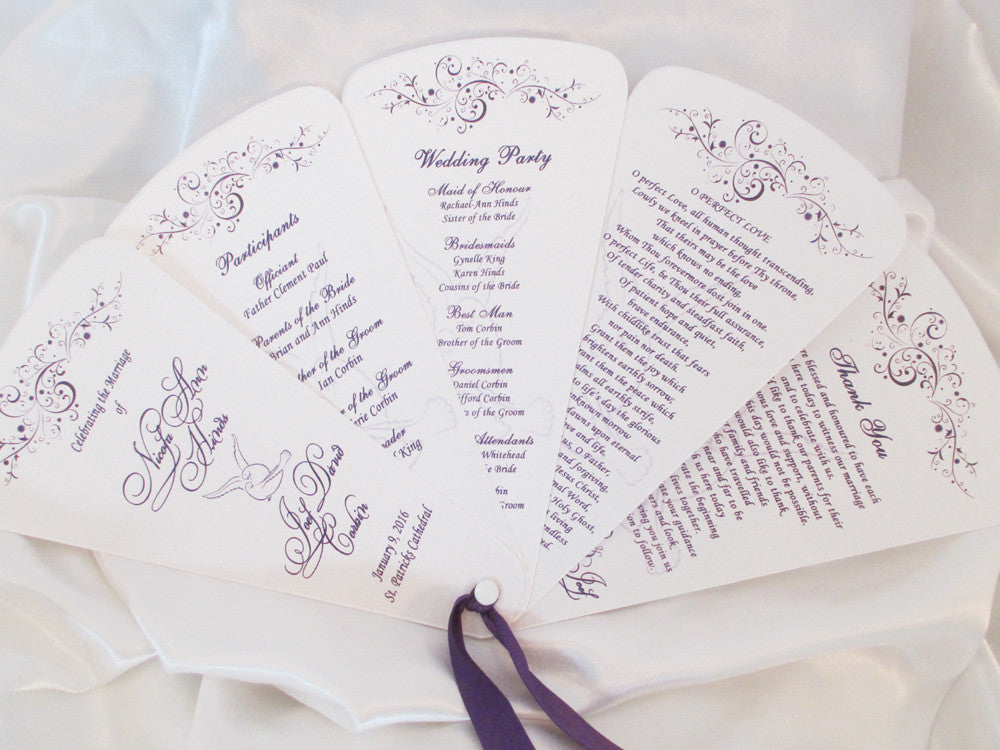 Celebrating the Marriage
of
Nicola Ann
Hinds
Joel David
Corbin
January 9, 2016
St. Patricks Cathedral
Participants
Officiant
Father Clement Paul
Parents of the Bride
Brian and Ann Hinds
her of the Groom
Ian Corbin
er of the Groom
rie Corbin
ader
King
Wedding Party
Maid of Honour
Rachael-Ann Hinds
Sister of the Bride
Bridesmaids
Gynelle King
Karen Hinds
Cousins of the Bride
Best Man
Tom Corbin
Brother of the Groom
Groomsmen
Daniel Corbin
fford Corbin
s of the Groom
Attendants
Whitehead
e Bride
rbin
Groom
O PERFECT LOVE
O perfect Love, all human thought transcending,
Lowly we kneel in prayer before Thy throne,
That theirs may be the love
which knows no ending,
Whom Thou forevermore dost join in one.
O perfect Life, be Thou their full assurance,
Of tender charity and steadfast faith,
Of patient hope and quiet
brave endurance,
With childlike trust that fears
nor pain nor death.
Grant them the joy which
brightens earthly sorrow;
rant them the peace which
alms all earthly strife,
life's day the glorious
unknown morrow
dawns upon eternal
ve and life.
O Father,
and forgiving,
Jesus Christ,
nal Word,
Holy Ghost,
er living
ndless
Thank You
e blessed and honoured to have each
here today to witness our marriage
and to celebrate with us.
like to thank our parents for their
ous love and support, without
this day would not be possible.
ould also like to thank
f family and friends
have travelled
us here today
te the beginning
lives together.
e your guidance
ers and look
ing you join us
n to follow.
Joel